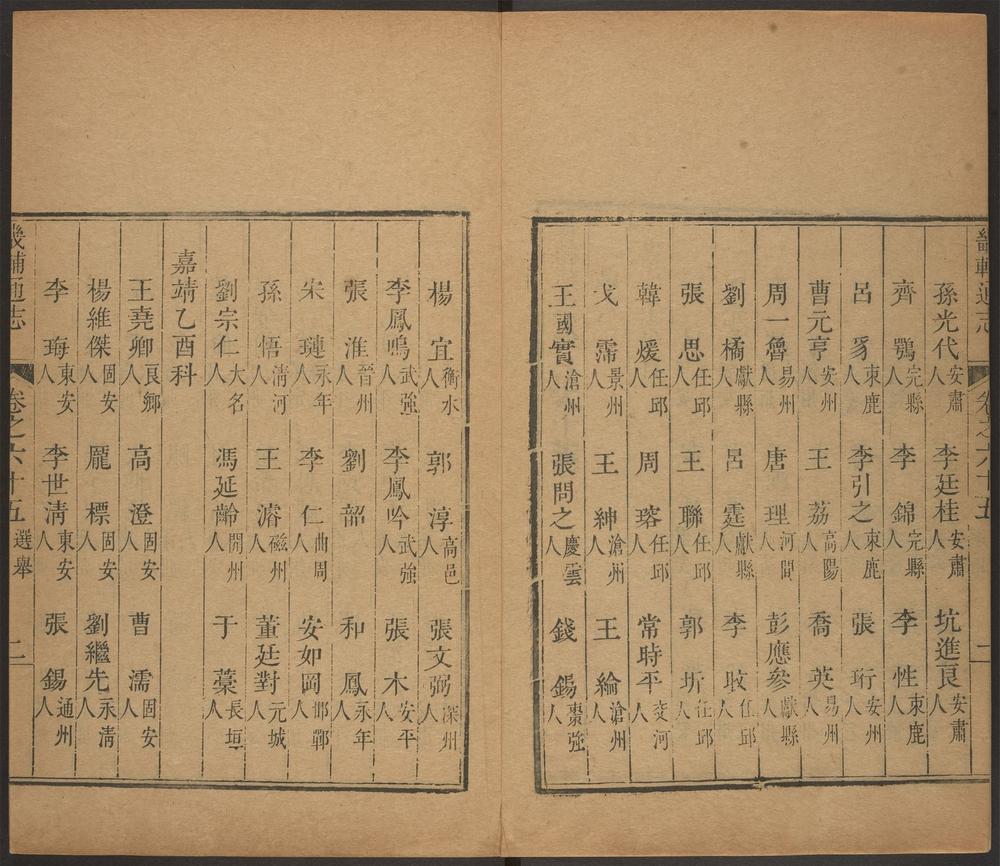 畿輔通志 卷之六十五 一
孫光代安肅人 李廷桂安肅人 坑進良安肅人
齊 鶚完縣人 李 錦完縣人 李 性束鹿人
呂 豸束鹿人 李引之束鹿人 張 珩安州人
曹元亨安州人 王 荔高陽人 喬 英易州人
周一魯易州人 唐 理河間人 彭應參獻縣人
劉 橘獻縣人 呂 霆獻縣人 李 㪅任邱人
張 思任邱人 王 聯任邱人 郭 圻任邱人
韓 煖任邱人 周 瑢任邱人 常時平交河人
戈 霈景州人 王 紳滄州人 王 綸滄州人
王國實滄州人 張問之慶雲人 錢 錫棗強人
楊 宜衡水人 郭 淳高邑人 張文弼深州人
李鳳鳴武強人 李鳳吟武強人 張 木安平人
張 淮晉州人 劉 韶 和 鳳永年人
宋 璉永年人 李 仁曲周人 安如岡邯鄲人
孫 悟淸河人 王 濬磁州人 董廷對元城人
劉宗仁大名人 馮延齡開州人 于 藁長垣人
嘉靖乙酉科
王堯卿良鄉人 高 澄固安人 曹 濡固安人
楊維傑固安人 龎 標固安人 劉繼先永淸人
李 珻東安人 李世淸東安人 張 錫通州人
畿輔通志 卷之六十五 選舉 二